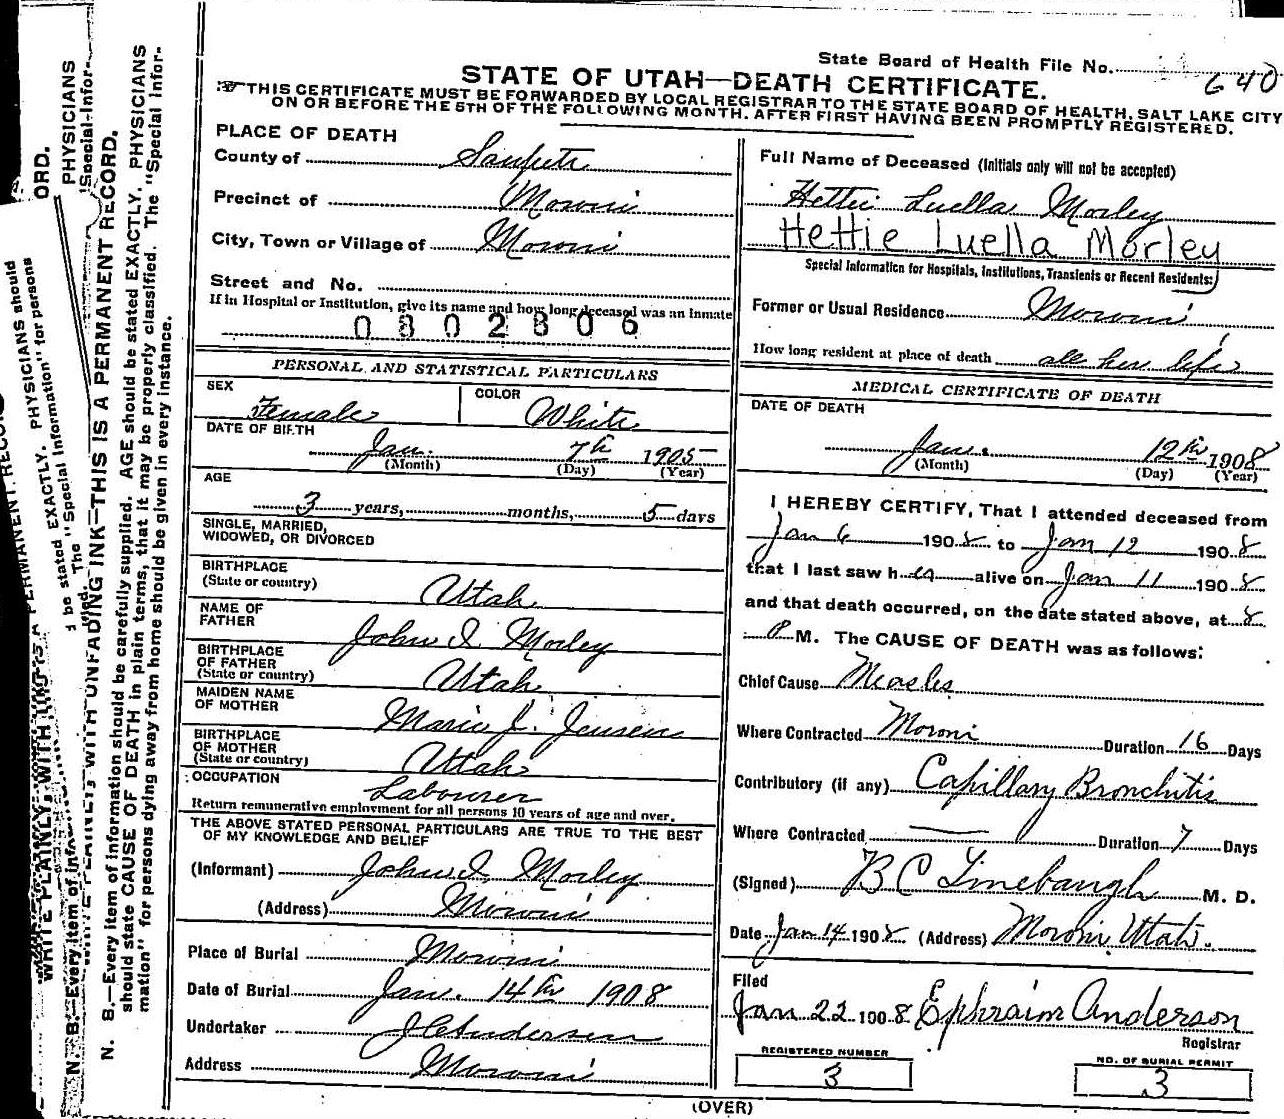 State Board of Health File No. 640
STATE OF UTAH—DEATH CERTIFICATE.
THIS CERTIFICATE MUST BE FORWARDED BY LOCAL REGISTRAR TO THE STATE BOARD OF HEALTH, SALT LAKE CITY
ON OR BEFORE THE 5TH OF THE FOLLOWING MONTH. AFTER FIRST HAVING BEEN PROMPTLY REGISTERED.
PLACE OF DEATH
County of Sanpete
Precinct of Moroni
City, Town or Village of Moroni
Street and No.
If in Hospital or Institution, give its name and how long deceased was an Inmate
0802806
PERSONAL AND STATISTICAL PARTICULARS
SEX Female COLOR White
DATE OF BIRTH
Jan. 7th 1905
(Month) (Day) (Year)
AGE
3 years, months, 5 days
SINGLE, MARRIED,
WIDOWED, OR DIVORCED
BIRTHPLACE
(State or country) Utah
NAME OF
FATHER John I. Morley
BIRTHPLACE
OF FATHER
(State or country) Utah
MAIDEN NAME
OF MOTHER Maria J. Jensen
BIRTHPLACE
OF MOTHER
(State or country) Utah
OCCUPATION Labourer
Return remunerative employment for all persons 10 years of age and over.
THE ABOVE STATED PERSONAL PARTICULARS ARE TRUE TO THE BEST
OF MY KNOWLEDGE AND BELIEF
(Informant) John I. Morley
(Address) Moroni
Place of Burial Moroni
Date of Burial Jan. 14th 1908
Undertaker J C Andersen
Address Moroni
Full Name of Deceased (Initials only will not be accepted)
Hettie Luella Morley
Hettie Luella Morley
Special Information for Hospitals, Institutions, Transients or Recent Residents:
Former or Usual Residence Moroni
How long resident at place of death all her life
MEDICAL CERTIFICATE OF DEATH
DATE OF DEATH
Jan. 12th 1908
(Month) (Day) (Year)
I HEREBY CERTIFY, That I attended deceased from
Jan 6 1908 to Jan 12 1908
that I last saw her alive on Jan 11 1908
and that death occurred, on the date stated above, at 8
P M. The CAUSE OF DEATH was as follows:
Chief Cause Measles
Where Contracted Moroni Duration 16 Days
Contributory (if any) Capillary Bronchitis
Where Contracted — Duration 7 Days
(Signed) B C Linebaugh M. D.
Date Jan 14 1908 (Address) Moroni Utah.
Filed
Jan 22 1908 Ephraim Anderson
Registrar
REGISTERED NUMBER
3
NO. OF BURIAL PERMIT
3
(OVER)
N. B.—Every item of information should be carefully supplied. AGE should be stated EXACTLY. PHYSICIANS
should state CAUSE OF DEATH in plain terms, that it may be properly classified. The "Special Infor-
mation" for persons dying away from home should be given in every instance.